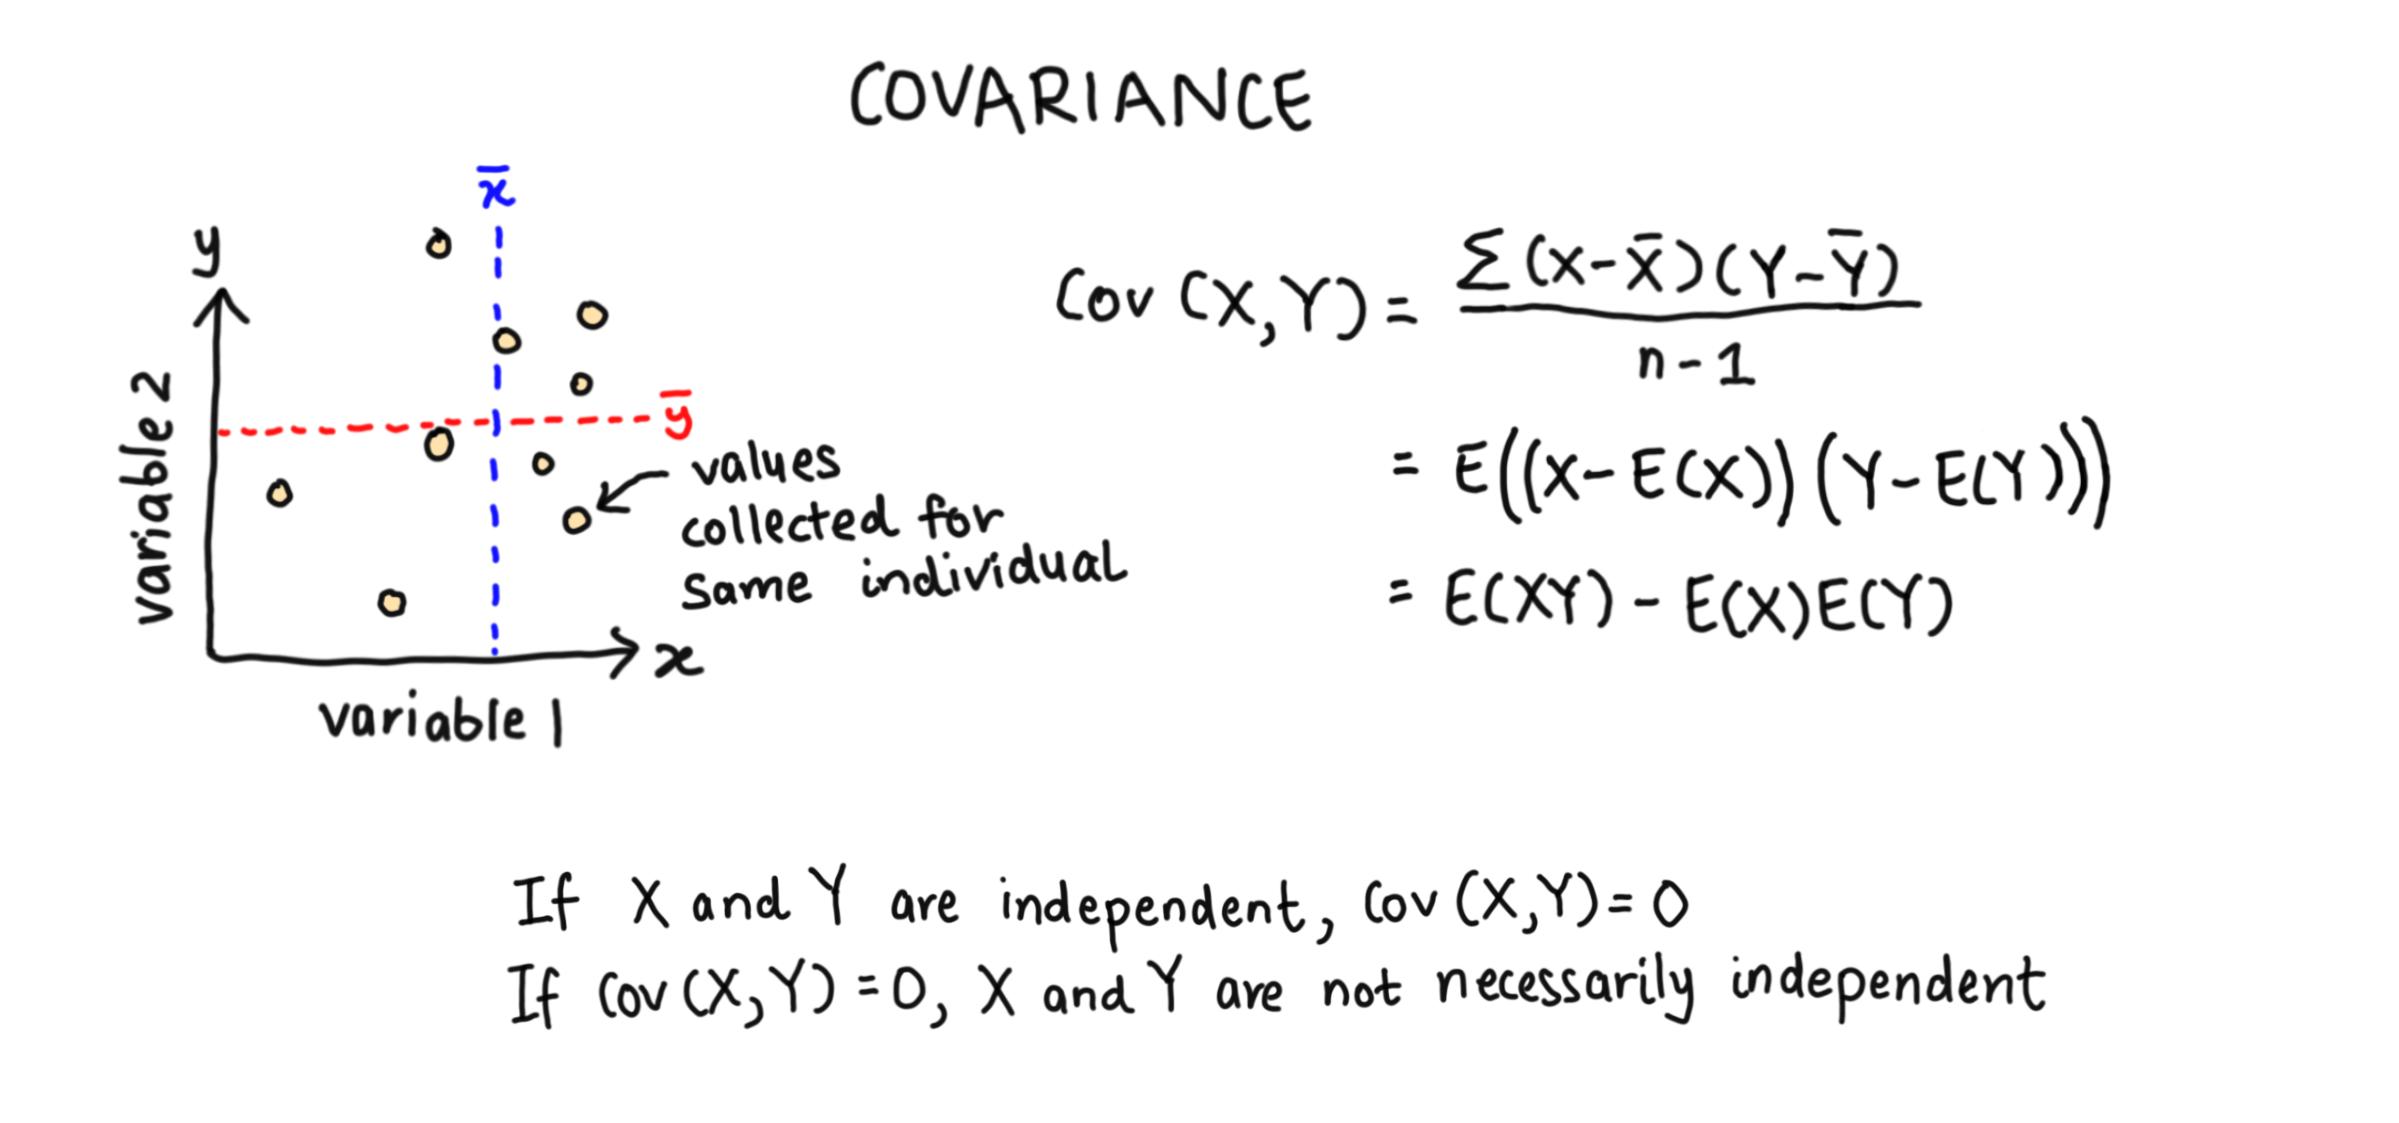 COVARIANCE
x̄
y
ȳ
variable 2
values
collected for
same individual
x
variable 1
Cov (X,Y) = Σ (X-X̄)(Y-Ȳ) / n-1
= E((X-E(X))(Y-E(Y)))
= E(XY) - E(X)E(Y)
If X and Y are independent, Cov (X,Y) = 0
If Cov (X,Y) = 0, X and Y are not necessarily independent